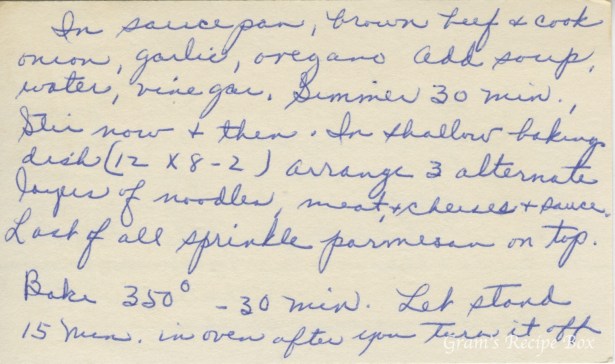 In saucepan, brown beef & cook
onion, garlic, oregano Add soup,
water, vinegar. Simmer 30 min.,
Stir now & then. In shallow baking
dish (12 x 8-2) arrange 3 alternate
layers of noodles, meat, & cheeses & sauce.
Last of all sprinkle parmesan on top.
Bake 350° - 30 min. Let stand
15 min. in oven after you turn it off
Gram's Recipe Box